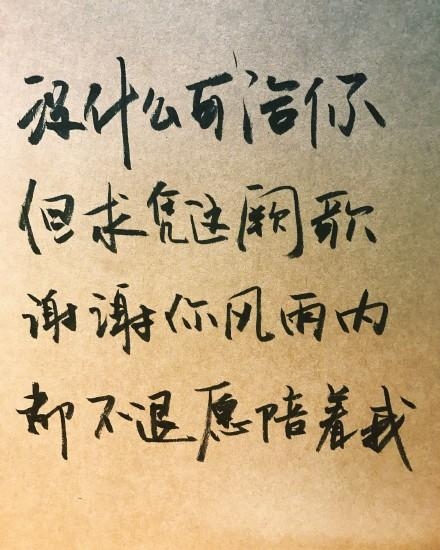 没什么可给你
但求凭这阙歌
谢谢你风雨内
却不退愿陪着我